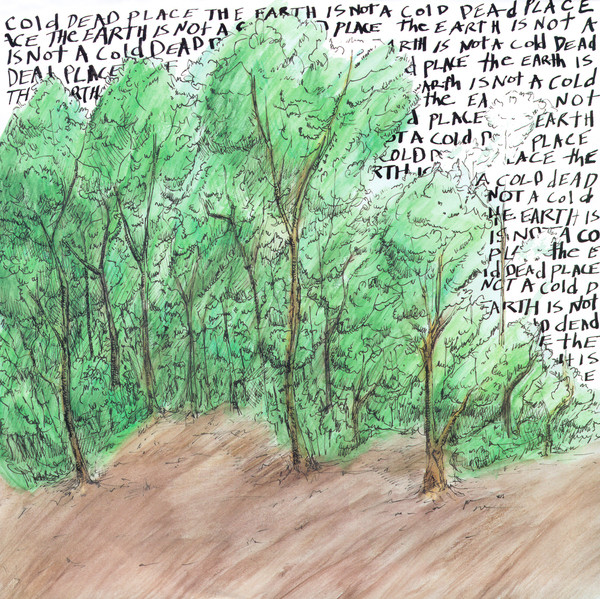 Cold DEAD PLACE THE EARTH IS Not A Cold DEAd PLACE
ACE THE EARTH IS NOt A C PLACE the EARTH IS NOT A
IS Not A Cold DEAD RTH IS Not A Cold DEAD
DEAd PLACE d PLACE the EARTH IS
THE EARTH EARth IS Not A COLd
the EA NOT
PLACE EARTH
OT A Cold D PLACE
COLD D LACE the
RTH IS A COLD dEAD
NOT A Cold
HE EARTH IS
IS NO A CO
PL the E
ld DEAD PLACE
NOT A Cold D
EARTH IS Not
D dEAd
E the
H IS
E